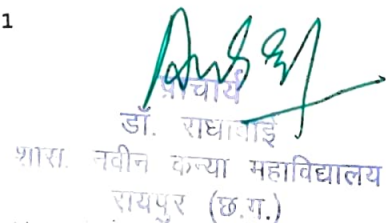 1
प्राचार्य
डॉ. राधाबाई
शास. नवीन कन्या महाविद्यालय
रायपुर (छ.ग.)